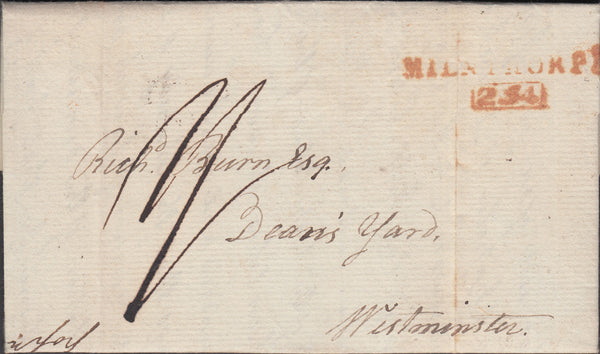 MILNTHORPE
254
Rich.d Burn Esq.
Dean's Yard,
Westminster.